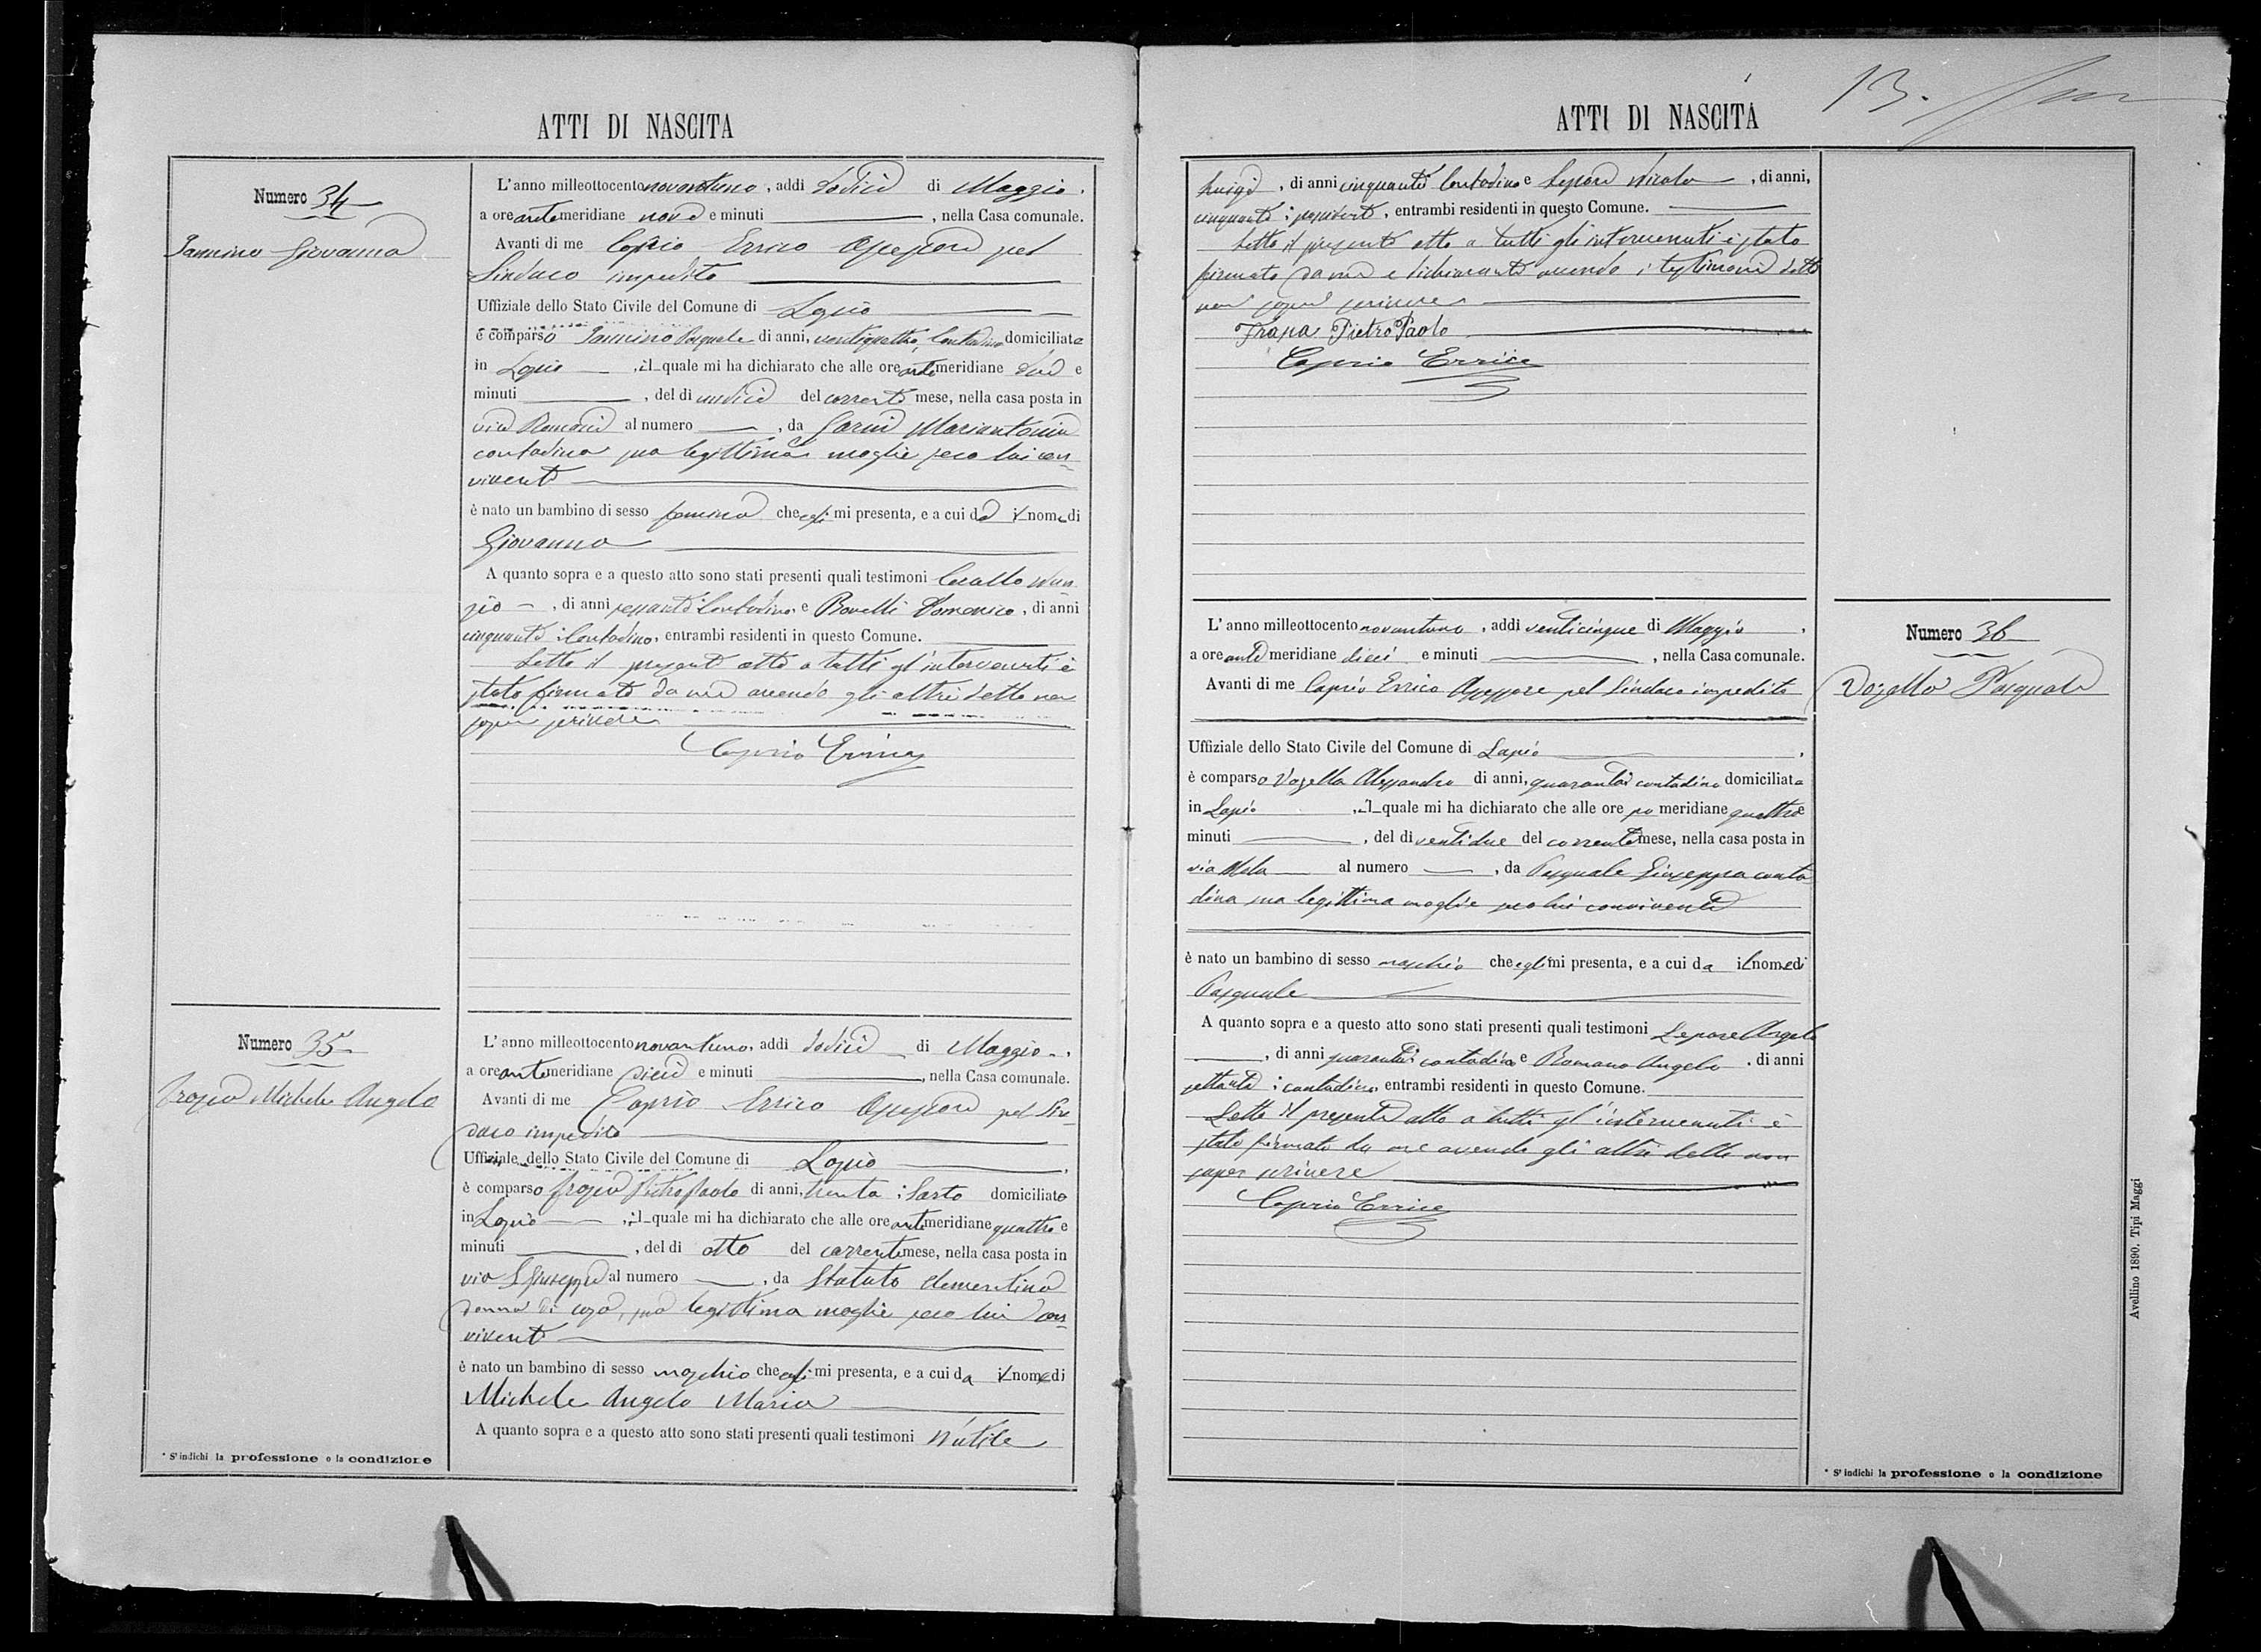 ATTI DI NASCITA
Numero 34
Iannino Giovanna
L'anno milleottocentonovantuno, addì dodici di Maggio,
a ore antemeridiane nove e minuti , nella Casa comunale.
Avanti di me Caprio Errico Assessore pel
Sindaco impedito
Uffiziale dello Stato Civile del Comune di Lapio
è comparso Iannino Pasquale di anni, ventiquattro, Contadino domiciliato
in Lapio , il quale mi ha dichiarato che alle ore antemeridiane due e
minuti , del dì undici del corrente mese, nella casa posta in
via Romani al numero , da Mariantonia
contadina sua legittima moglie seco lui con-
vivente
è nato un bambino di sesso femina che egli mi presenta, e a cui dà il nome di
Giovanna
A quanto sopra e a questo atto sono stati presenti quali testimoni Nun-
zio , di anni sessanta Contadino e Bovelli Domenico, di anni
cinquanta : Contadino, entrambi residenti in questo Comune.
Letto il presente atto a tutti gl'intervenuti è
stato firmato da me avendo gli altri detto non
saper scrivere
Caprio Errico
Numero 35
Michele Angelo
L'anno milleottocentonovantuno, addì dodici di Maggio,
a ore antemeridiane dieci e minuti , nella Casa comunale.
Avanti di me Caprio Errico Assessore pel Sin-
daco impedito
Uffiziale dello Stato Civile del Comune di Lapio
è comparso Pietro Paolo di anni, trenta : Sarto domiciliato
in Lapio , il quale mi ha dichiarato che alle ore antemeridiane quattro e
minuti , del dì otto del corrente mese, nella casa posta in
via S. Giuseppe al numero , da Statuto Clementina
donna di casa, sua legittima moglie seco lui con-
vivente
è nato un bambino di sesso maschio che egli mi presenta, e a cui da il nome di
Michele Angelo Maria
A quanto sopra e a questo atto sono stati presenti quali testimoni Nutile
* S'indichi la professione o la condizione
ATTI DI NASCITA
13.
Luigi , di anni cinquanta Contadino e Lepore Nicola , di anni,
cinquanta : possidente, entrambi residenti in questo Comune.
Letto il presente atto a tutti gli intervenuti è stato
firmato da me e dichiarante avendo i testimoni detto
non saper scrivere
Pietro Paolo
Caprio Errico
Numero 36
Vozella Pasquale
L'anno milleottocentonovantuno , addì venticinque di Maggio ,
a ore antemeridiane dieci e minuti , nella Casa comunale.
Avanti di me Caprio Errico Assessore pel Sindaco impedito
Uffiziale dello Stato Civile del Comune di Lapio ,
è comparso Vozella Alessandro di anni, quaranta contadino domiciliato
in Lapio , il quale mi ha dichiarato che alle ore po meridiane quattro e
minuti , del dì ventidue del corrente mese, nella casa posta in
via al numero , da Pasquale Giuseppa conta
dina sua legittima moglie seco lui convivente
è nato un bambino di sesso maschio che egli mi presenta, e a cui da il nome di
Pasquale
A quanto sopra e a questo atto sono stati presenti quali testimoni Lepore Angelo
, di anni quaranta : contadino e Romano Angelo , di anni
settanta : contadino, entrambi residenti in questo Comune.
Letto il presente atto a tutti gl'intervenuti è
stato firmato da me avendo gli altri detto non
saper scrivere
Caprio Errico
* S'indichi la professione o la condizione
Avellino 1890. Tipi Maggi